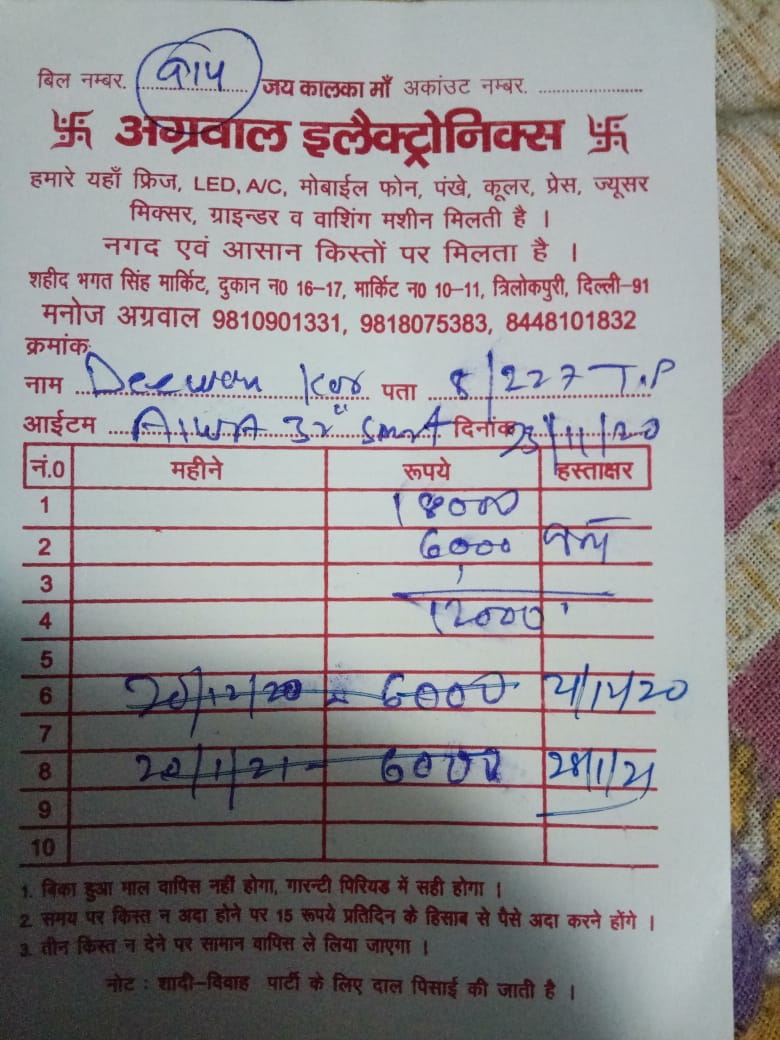 बिल नम्बर. .................... जय कालका माँ अकांउट नम्बर. ....................
卐 अग्रवाल इलैक्ट्रोनिक्स 卐
हमारे यहाँ फ्रिज, LED, A/C, मोबाईल फोन, पंखे, कूलर, प्रेस, ज्यूसर
मिक्सर, ग्राइन्डर व वाशिंग मशीन मिलती है ।
नगद एवं आसान किस्तों पर मिलता है ।
शहीद भगत सिंह मार्किट, दुकान न0 16-17, मार्किट न0 10-11, त्रिलोकपुरी, दिल्ली-91
मनोज अग्रवाल 9810901331, 9818075383, 8448101832
क्रमांक
नाम Deewan पता 8/227 T.P
आईटम AIWA 32" Smart दिनांक 23/11/20
नं.0 महीने रूपये हस्ताक्षर
1 18000
2 6000
3
4 12000
5
6 20/12/20 - 6000 21/12/20
7
8 20/1/21 - 6000 28/1/21
9
10
1. बिका हुआ माल वापिस नहीं होगा, गारन्टी पिरियड में सही होगा ।
2. समय पर किस्त न अदा होने पर 15 रूपये प्रतिदिन के हिसाब से पैसे अदा करने होंगे ।
3. तीन किस्त न देने पर सामान वापिस ले लिया जाएगा ।
नोट : शादी-विवाह पार्टी के लिए दाल पिसाई की जाती है ।